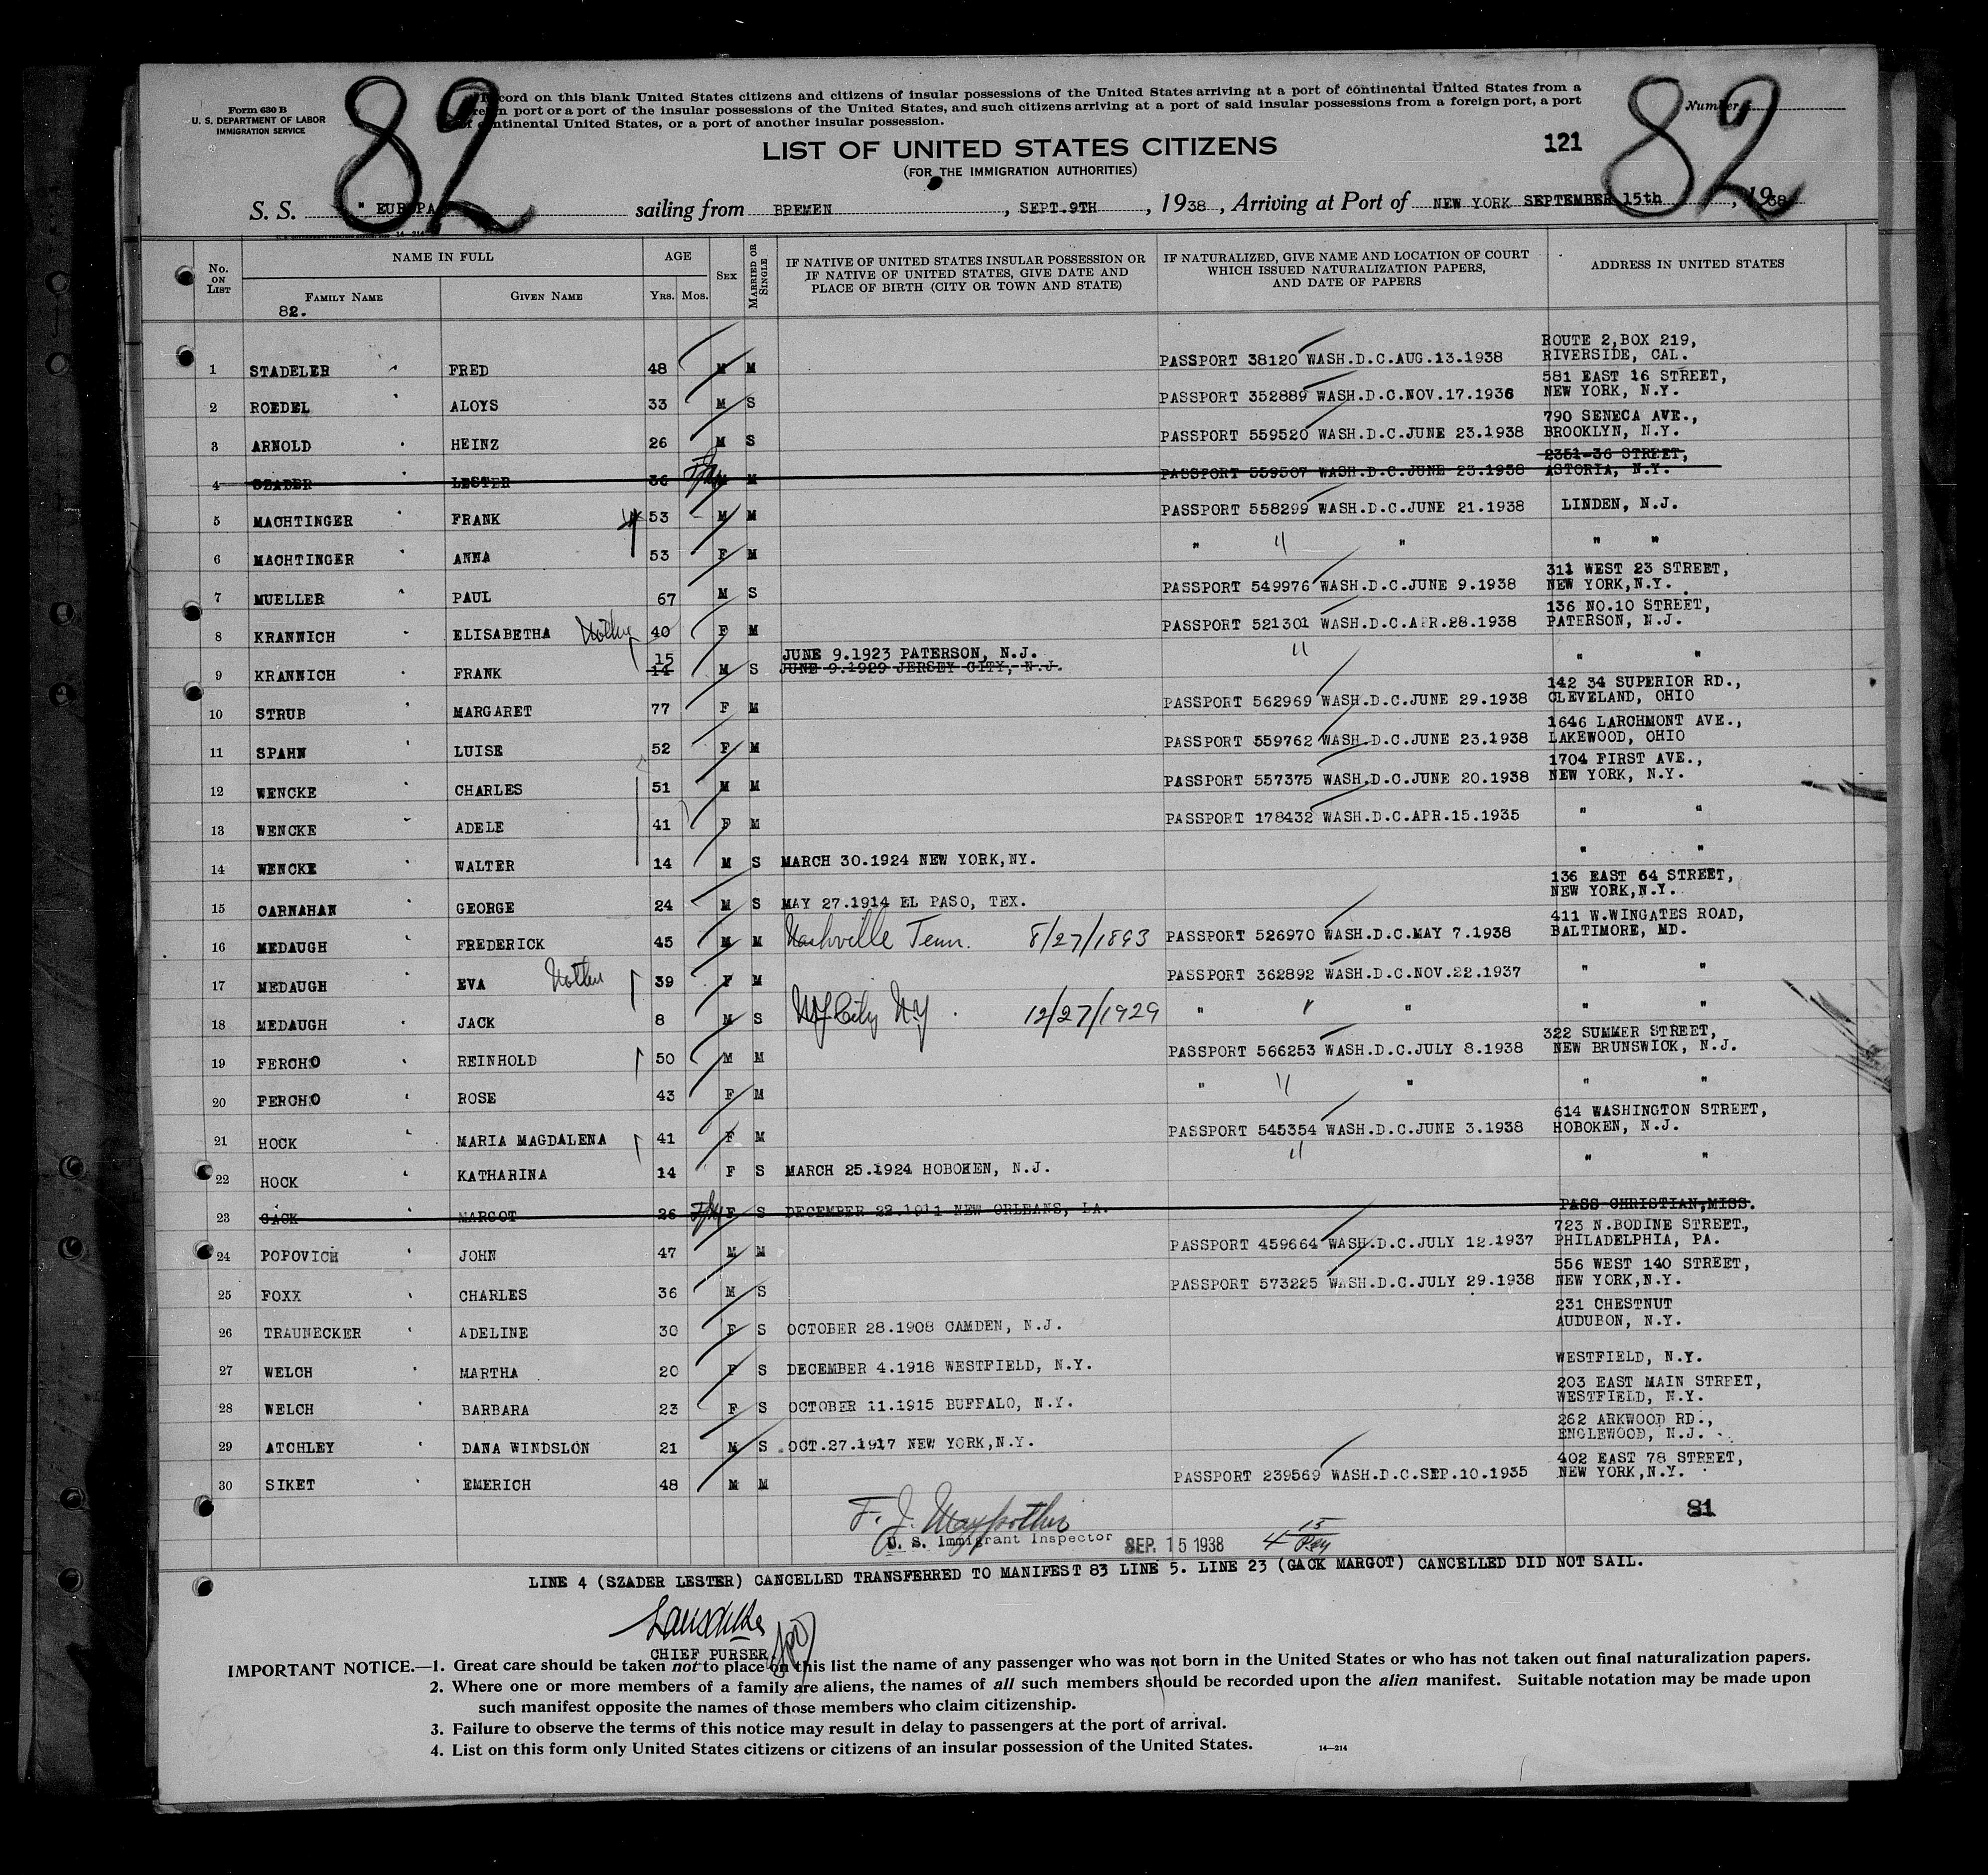 82 82
Form 630 B
U. S. DEPARTMENT OF LABOR
IMMIGRATION SERVICE
Record on this blank United States citizens and citizens of insular possessions of the United States arriving at a port of continental United States from a
foreign port or a port of the insular possessions of the United States, and such citizens arriving at a port of said insular possessions from a foreign port, a port
of continental United States, or a port of another insular possession.
Number
LIST OF UNITED STATES CITIZENS
121
(FOR THE IMMIGRATION AUTHORITIES)
S. S. " EUROPA sailing from BREMEN, SEPT.9TH, 1938, Arriving at Port of NEW YORK SEPTEMBER 15th, 1938
No. ON LIST
NAME IN FULL
FAMILY NAME
GIVEN NAME
AGE
YRS. MOS.
SEX
MARRIED OR SINGLE
IF NATIVE OF UNITED STATES INSULAR POSSESSION OR
IF NATIVE OF UNITED STATES, GIVE DATE AND
PLACE OF BIRTH (CITY OR TOWN AND STATE)
IF NATURALIZED, GIVE NAME AND LOCATION OF COURT
WHICH ISSUED NATURALIZATION PAPERS,
AND DATE OF PAPERS
ADDRESS IN UNITED STATES
82.
ROUTE 2,BOX 219,
1 STADELER FRED 48 M M PASSPORT 38120 WASH.D.C.AUG.13.1938 RIVERSIDE, CAL.
581 EAST 16 STREET,
2 ROEDEL ALOYS 33 M S PASSPORT 352889 WASH.D.C.NOV.17.1936 NEW YORK, N.Y.
790 SENECA AVE.,
3 ARNOLD HEINZ 26 M S PASSPORT 559520 WASH.D.C.JUNE 23.1938 BROOKLYN, N.Y.
2351-36 STREET,
4 SZADER LESTER 36 M M PASSPORT 559507 WASH.D.C.JUNE 23.1938 ASTORIA, N.Y.
5 MACHTINGER FRANK 53 M M PASSPORT 558299 WASH.D.C.JUNE 21.1938 LINDEN, N.J.
6 MACHTINGER ANNA 53 F M " " " " "
311 WEST 23 STREET,
7 MUELLER PAUL 67 M S PASSPORT 549976 WASH.D.C.JUNE 9.1938 NEW YORK,N.Y.
136 NO.10 STREET,
8 KRANNICH ELISABETHA Mother 40 F M PASSPORT 521301 WASH.D.C.APR.28.1938 PATERSON, N.J.
15 JUNE 9.1923 PATERSON, N.J. "
9 KRANNICH FRANK 14 M S JUNE 9.1929 JERSEY CITY, N.J. " "
142 34 SUPERIOR RD.,
10 STRUB MARGARET 77 F M PASSPORT 562969 WASH.D.C.JUNE 29.1938 CLEVELAND, OHIO
1646 LARCHMONT AVE.,
11 SPAHN LUISE 52 F M PASSPORT 559762 WASH.D.C.JUNE 23.1938 LAKEWOOD, OHIO
1704 FIRST AVE.,
12 WENCKE CHARLES 51 M M PASSPORT 557375 WASH.D.C.JUNE 20.1938 NEW YORK, N.Y.
13 WENCKE ADELE 41 F M PASSPORT 178432 WASH.D.C.APR.15.1935 " "
14 WENCKE WALTER 14 M S MARCH 30.1924 NEW YORK,NY. " "
136 EAST 64 STREET,
15 CARNAHAN GEORGE 24 M S MAY 27.1914 EL PASO, TEX. NEW YORK,N.Y.
411 W.WINGATES ROAD,
16 MEDAUGH FREDERICK 45 M M Nashville Tenn. 8/27/1893 PASSPORT 526970 WASH.D.C.MAY 7.1938 BALTIMORE, MD.
17 MEDAUGH EVA Mother 39 F M PASSPORT 362892 WASH.D.C.NOV.22.1937 " "
18 MEDAUGH JACK 8 M S NY City NY 12/27/1929 " " " " "
322 SUMMER STREET,
19 FERCHO REINHOLD 50 M M PASSPORT 566253 WASH.D.C.JULY 8.1938 NEW BRUNSWICK, N.J.
20 FERCHO ROSE 43 F M " " " " "
614 WASHINGTON STREET,
21 HOCK MARIA MAGDALENA 41 F M PASSPORT 545354 WASH.D.C.JUNE 3.1938 HOBOKEN, N.J.
22 HOCK KATHARINA 14 F S MARCH 25.1924 HOBOKEN, N.J. " " "
23 GACK MARGOT 26 F S DECEMBER 22.1911 NEW ORLEANS, LA. PASS CHRISTIAN,MISS.
723 N.BODINE STREET,
24 POPOVICH JOHN 47 M M PASSPORT 459664 WASH.D.C.JULY 12.1937 PHILADELPHIA, PA.
556 WEST 140 STREET,
25 FOXX CHARLES 36 M S PASSPORT 573225 WASH.D.C.JULY 29.1938 NEW YORK,N.Y.
231 CHESTNUT
26 TRAUNECKER ADELINE 30 F S OCTOBER 28.1908 CAMDEN, N.J. AUDUBON, N.Y.
27 WELCH MARTHA 20 F S DECEMBER 4.1918 WESTFIELD, N.Y. WESTFIELD, N.Y.
203 EAST MAIN STREET,
28 WELCH BARBARA 23 F S OCTOBER 11.1915 BUFFALO, N.Y. WESTFIELD, N.Y.
262 ARKWOOD RD.,
29 ATCHLEY DANA WINDSLON 21 M S OCT.27.1917 NEW YORK,N.Y. ENGLEWOOD, N.J.
402 EAST 78 STREET,
30 SIKET EMERICH 48 M M PASSPORT 239569 WASH.D.C.SEP.10.1935 NEW YORK,N.Y.
81
F. J.
U. S. Immigrant Inspector SEP. 15 1938
LINE 4 (SZADER LESTER) CANCELLED TRANSFERRED TO MANIFEST 83 LINE 5. LINE 23 (GACK MARGOT) CANCELLED DID NOT SAIL.
CHIEF PURSER
IMPORTANT NOTICE.—1. Great care should be taken not to place on this list the name of any passenger who was not born in the United States or who has not taken out final naturalization papers.
2. Where one or more members of a family are aliens, the names of all such members should be recorded upon the alien manifest. Suitable notation may be made upon
such manifest opposite the names of those members who claim citizenship.
3. Failure to observe the terms of this notice may result in delay to passengers at the port of arrival.
4. List on this form only United States citizens or citizens of an insular possession of the United States.
14—214